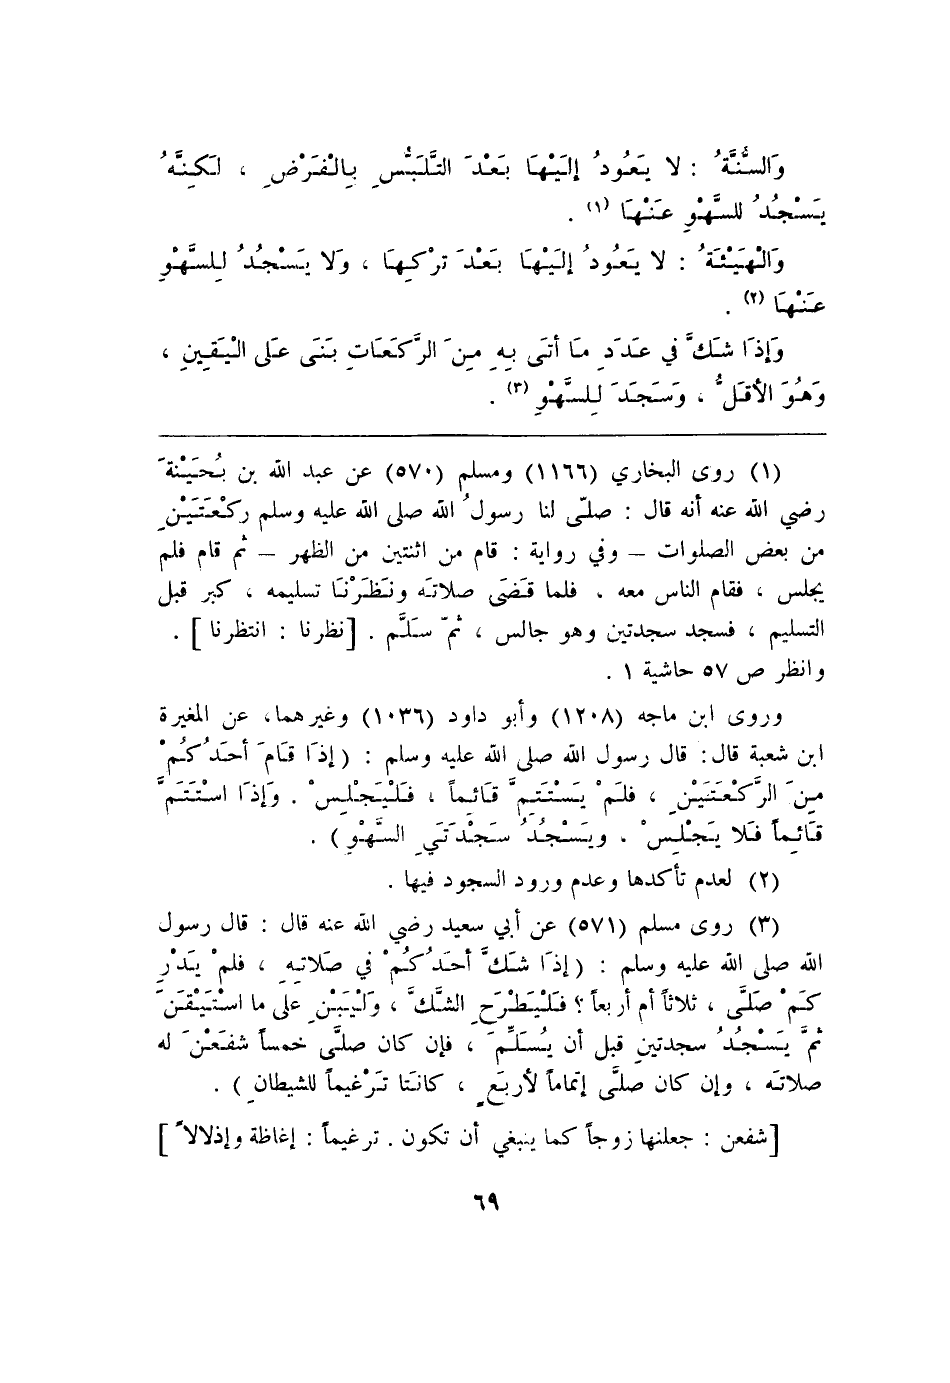 وَالسُّنَّةُ : لا يَعُودُ إلَيْهَا بَعْدَ التَّلَبُّسِ بِالْفَرْضِ ، لَكِنَّهُ
يَسْجُدُ للسَّهْوِ عَنْهَا (١) .
وَالْهَيْئَةُ : لا يَعُودُ إلَيْهَا بَعْدَ تَرْكِهَا ، وَلا يَسْجُدُ لِلسَّهْوِ
عَنْهَا (٢) .
وَإذَا شَكَّ في عَدَدِ مَا أتَى بِهِ مِنَ الرَّكَعَاتِ بَنَى عَلَى الْيَقِينِ ،
وَهُوَ الأقَلُّ ، وَسَجَدَ لِلسَّهْوِ (٣) .
(١) روى البخاري (١١٦٦) ومسلم (٥٧٠) عن عبد الله بن بُحَيْنَةَ
رضي الله عنه أنه قال : صلّى لنا رسولُ الله صلى الله عليه وسلم ركْعَتَيْنِ
من بعض الصلوات – وفي رواية : قام من اثنتين من الظهر – ثم قام فلم
يجلس ، فقام الناس معه . فلما قَضَى صلاتَه ونَظَرْنَا تسليمه ، كبر قبل
التسليم ، فسجد سجدتين وهو جالس ، ثمّ سَلَّم . [نظرنا : انتظرنا ] .
وانظر ص ٥٧ حاشية ١ .
وروى ابن ماجه (١٢٠٨) وأبو داود (١٠٣٦) وغيرهما، عن المغيرة
ابن شعبة قال: قال رسول الله صلى الله عليه وسلم : ( إذَا قَامَ أحَدُكُمْ
مِنَ الرَّكْعَتَيْنِ ، فلَمْ يَسْتَتِمَّ قَائِماً ، فَلْيَجْلِسْ . وَإذَا اسْتَتَمَّ
قَائِماً فَلا يَجْلِسْ . ويَسْجُدُ سَجْدَتَيِ السَّهْوِ ) .
(٢) لعدم تأكدها وعدم ورود السجود فيها .
(٣) روى مسلم (٥٧١) عن أبي سعيد رضي الله عنه قال : قال رسول
الله صلى الله عليه وسلم : ( إذَا شَكَّ أحَدُكُمْ في صَلاتِهِ ، فلمْ يَدْرِ
كَمْ صَلَّى ، ثلاثاً أم أربعاً ؟ فَلْيَطْرَحِ الشَّكَّ ، وَلْيَبْنِ على ما اسْتَيْقَنَ
ثمَّ يَسْجُدُ سجدتينِ قبل أن يُسَلِّمَ ، فإن كان صلَّى خمساً شفَعْنَ له
صلاتَه ، وإن كان صلَّى إتماماً لأربَعٍ ، كانَتا تَرْغيماً للشيطانِ ) .
[شفعن : جعلنها زوجاً كما ينبغي أن تكون . ترغيماً : إغاظة وإذلالاً ]
٦٩